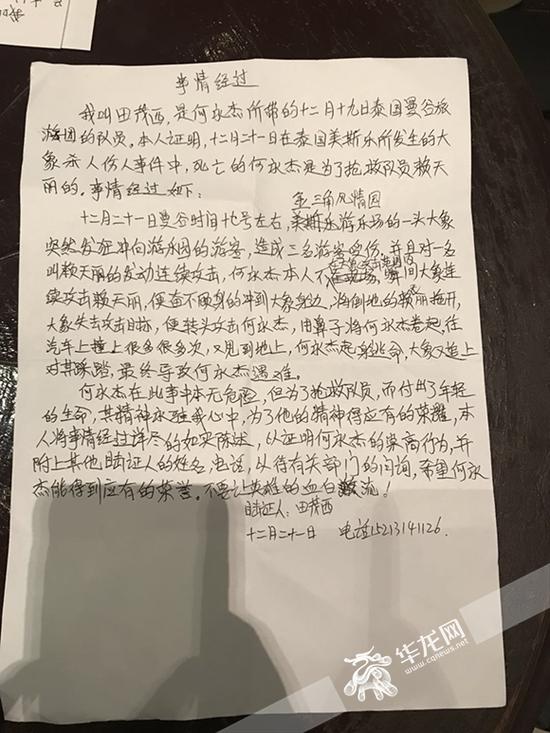 事情经过
我叫田茂西，是何永杰所带的十二月十九日泰国曼谷旅
游团的队员。本人证明，十二月二十一日在泰国美斯乐所发生的大
象杀人伤人事件中，死亡的何永杰是为了抢救队员赖天
丽的。事情经过如下：
金三角风情园
十二月二十一日曼谷时间十七号左右，美斯乐游乐场的一头大象
突然发狂冲向游乐园的游客，造成三名游客受伤，并且对一名
叫赖天丽的发动连续攻击，何永杰本人不在 瞬间大象连
续攻击赖天丽，便奋不顾身的冲到大象身边，将倒地的赖丽拖开，
大象失去攻击目标，便转头攻击何永杰，用鼻子将何永杰卷起，往
汽车上撞上很多很多次，又甩到地上，何永杰起身逃命，大象又追上
对其踩踏，最终导致何永杰遇难。
何永杰在此事中本无危险，但为了抢救队员，而付出了年轻
的生命，其精神永驻我心中，为了他的精神得应有的荣耀，本
人将事情经过详尽的如实陈述，以证明何永杰的崇高行为，并
附上其他目睹证人的姓名，电话，以待有关部门的问询，希望何永
杰能得到应有的荣誉。不要让英雄的血白流！
目睹证人：田茂西
十二月二十一日 电话15213141126.
华龙网
www.cqnews.net